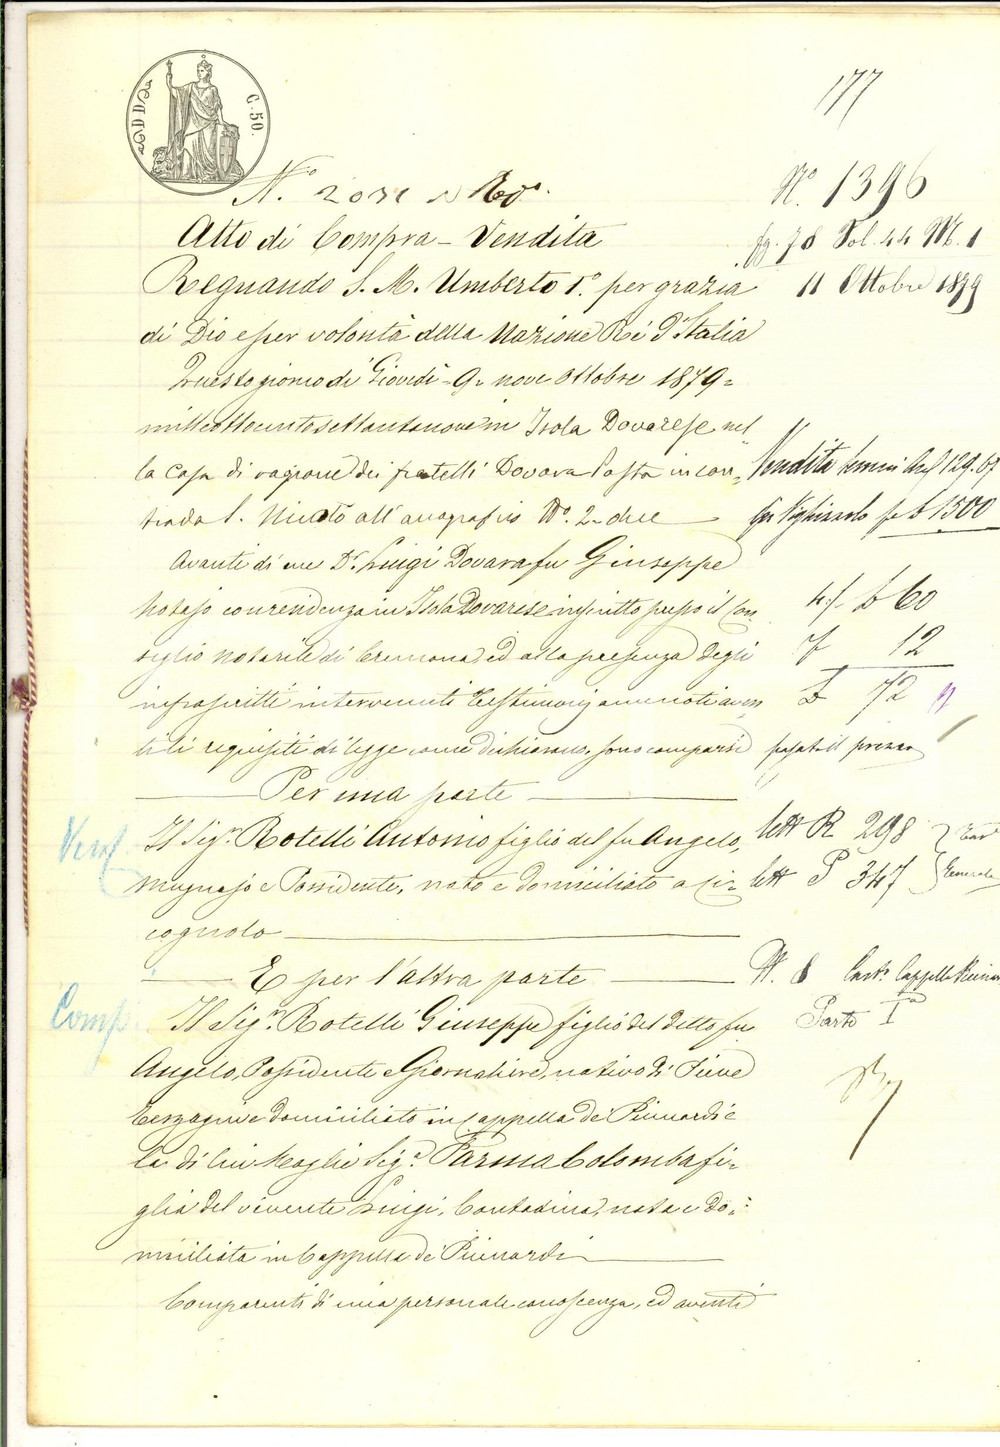 177
C. 50.
N.° 2031 Rep.°
N.° 1396
Atto di Compra - Vendita
fg. 78 Vol. 44 M. 1
Regnando S. M. Umberto 1.° per grazia
11 Ottobre 1879
di Dio e per volontà della Nazione Re d'Italia
Questo giorno di Giovedì - 9 - nove Ottobre 1879 =
mille ottocento settantanove in Isola Dovarese nel
la casa di ragione dei fratelli Dovara Posta in con=
Vendita
trada S. all'anagrafico N.° 2 - due
£ 1500
Avanti di me D.r Luigi Dovara fu Giuseppe
Notajo con residenza in Isola Dovarese inscritto presso il Con
£ 60
siglio notarile di Cremona, ed alla presenza degli
12
infrascritti intervenuti Testimonj a me noti aven
£ 72
ti li requisiti di legge come dichiarano, sono comparsi
pagato il prezzo
Per una parte
Vend
Il Sig.r Rotelli Antonio figlio del fu Angelo,
lett R 298
mugnajo e Possidente, nato e domiciliato a Ci=
lett P 347
Generale
cognolo
E per l'altra parte
N. 8
Comp
Il Sig.r Rotelli Giuseppe figlio del detto fu
Parte I
Angelo, Possidente e Giornaliere, nativo di Pieve
Terzagni e domiciliato in Cappella de Picenardi e
la di lui Moglie Sig.a Farma Colomba fi=
glia del vivente Luigi, Contadina, nata e do=
miciliata in Cappella de Picenardi
Comparenti di mia personale conoscenza, ed aventi